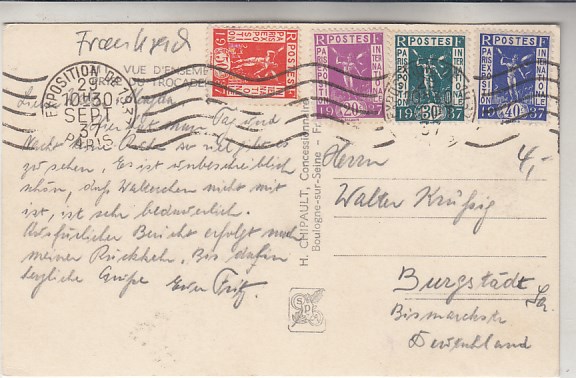 Frankreich
EXPOSITION DE
29
10H30
SEPT
37
PARIS
VUE D'ENSEMBLE
TROCADÉRO
RF POSTES
PARIS 1937
EXPOSITION INTERNATIONALE
RF POSTES
PARIS EXPOSITION INTERNATIONALE
1920 37
RF POSTES
PARIS EXPOSITION INTERNATIONALE
1930 37
RF POSTES
PARIS EXPOSITION INTERNATIONALE
1940 37
Tag und
Nacht so viel
zu sehen. Es ist unbeschreiblich
schön, daß Walterchen nicht mit
ist, ist sehr bedauerlich.
Ausführlicher Bericht erfolgt nach
meiner Rückkehr. Bis dahin
herzliche Grüße Euer Fritz.
H. CHIPAULT, Concessionnaire
Boulogne-sur-Seine - Fr
SPE
4,-
Herrn
Walter Krüßig
Burgstädt
Sa.
Bismarckstr.
Deutschland